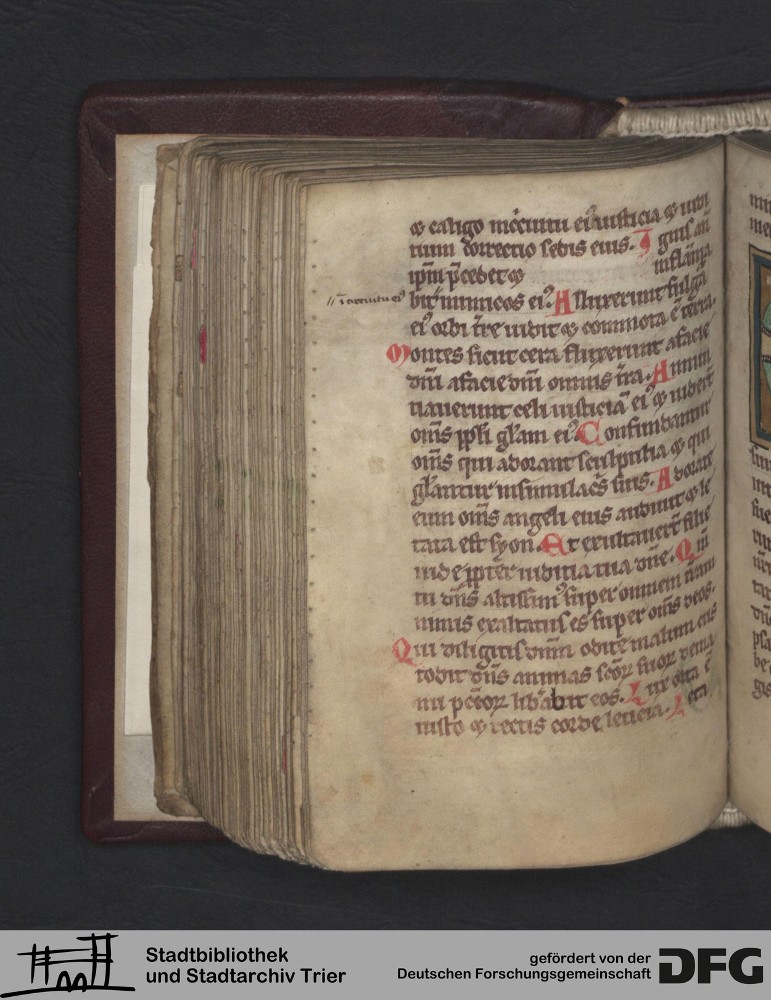 ⁊ caligo incircuitu ei⁹ iusticia ⁊ iudi
tium correctio sedis eius. I gnis an
ipm p̄cedet ⁊ inflāma
// ī circuitu ei⁹
bit inimicos ei⁹. A lluxerunt fulgᵃ
ei⁹ orbi tr̄e uidit ⁊ commota ē terra.
M ontes sicut cera fluxerunt afacie
dn̄i afacie dn̄i omnis tr̄a. A nnun
tiauerunt celi iusticiā ei⁹ ⁊ uiderūt
om̄s pp̄li gl̄am ei⁹. C onfundantur
om̄s qui adorant sculptilia ⁊ qui
gl̄antur insimulac̄s suis. A dorate
eum om̄s angeli eius audiuit ⁊ le
tata est syon. E t exultauerūt filie
iude pp̄ter iuditia tua dn̄e. Q m̄
tu dn̄s altissim⁹ super omnem tr̄am
nimis exaltatus es super om̄s deos.
Q ui diligitis dnm̄ odite malum cus
todit dn̄s animas sc̄oꝝ suoꝝ de ma
nu pc̄coꝝ lib̄abit eos. L ux orta ē
iusto ⁊ rectis corde leticia. L eta
Stadtbibliothek
und Stadtarchiv Trier
gefördert von der
Deutschen Forschungsgemeinschaft
DFG